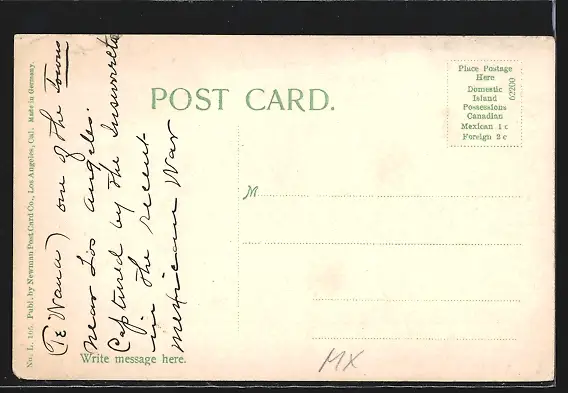 POST CARD.
Place Postage
Here
Domestic
Island
Possessions
Canadian
Mexican 1 c
Foreign 2 c
62200
No. L. 166. Publ. by Newman Post Card Co., Los Angeles, Cal. Made in Germany.
(Te Wana) one of the towns
near Los Angeles.
Captured by the Insurrectos
in the recent
Mexican War
M
Write message here.
MX